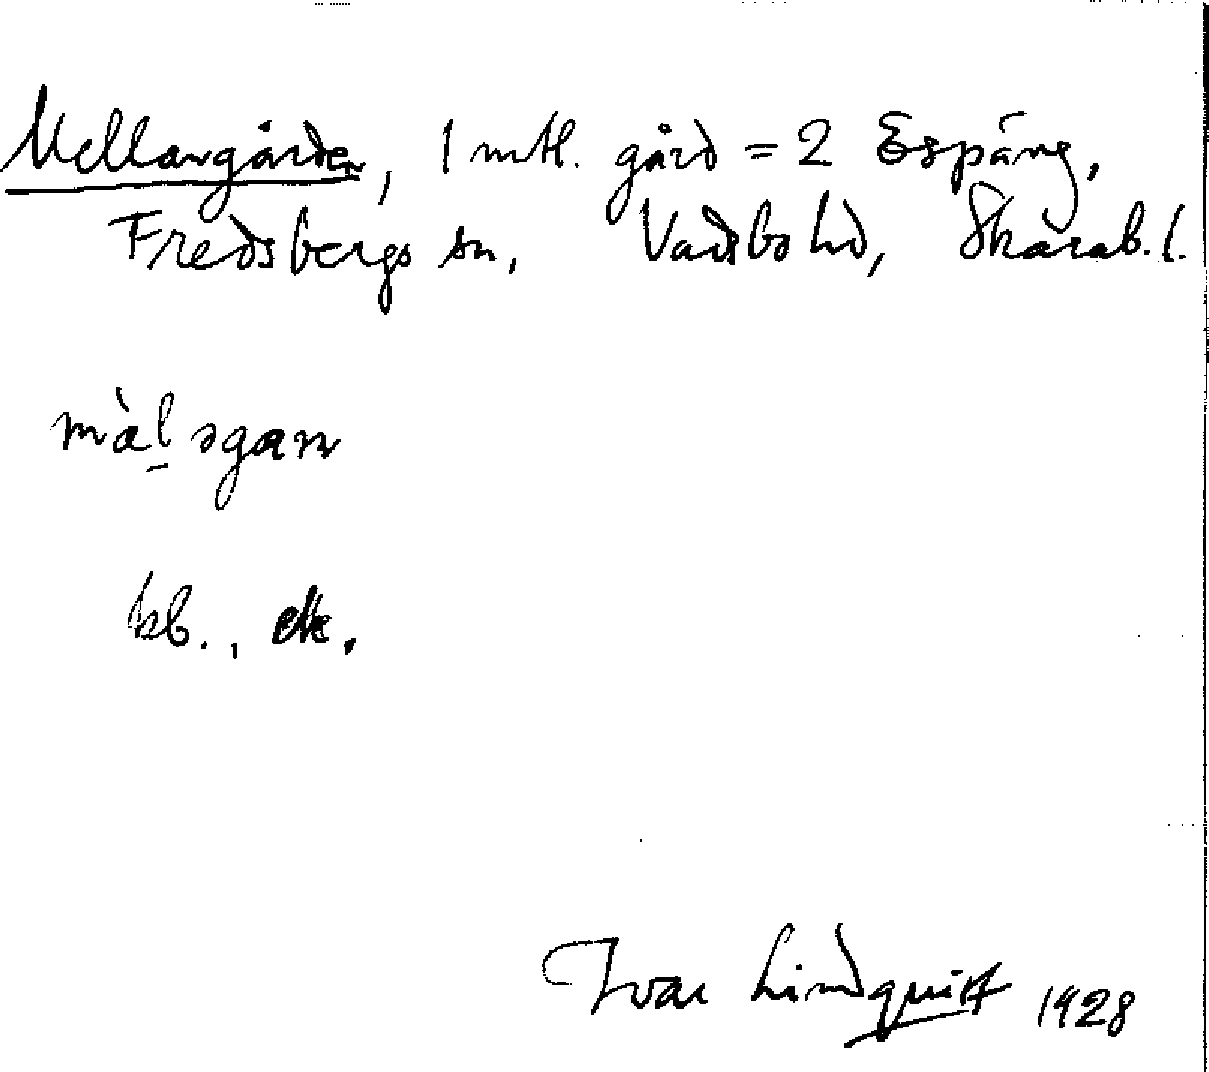 Mellangården, 1 mtl. gård = 2 Espäng,
Fredsbergs sn, Vadsbo hd, Skarab. l.
màl̠ əgan
kb., etc.
Ivar Lindquist 1928